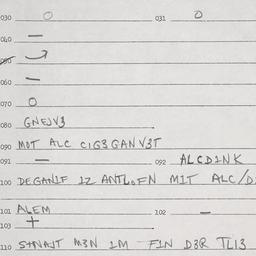 030 O 031 O
040 —
050
060 —
070 O
080 GNEJV3
090 MOT ALC CIG3GANV3T
091 — 092 ALCD1NK
100 DEGANIF 1Z ANTL.FN MIT ALC/D
101 ALEM 102 —
103 +
110 M3N 1M - F1N D3R TL13